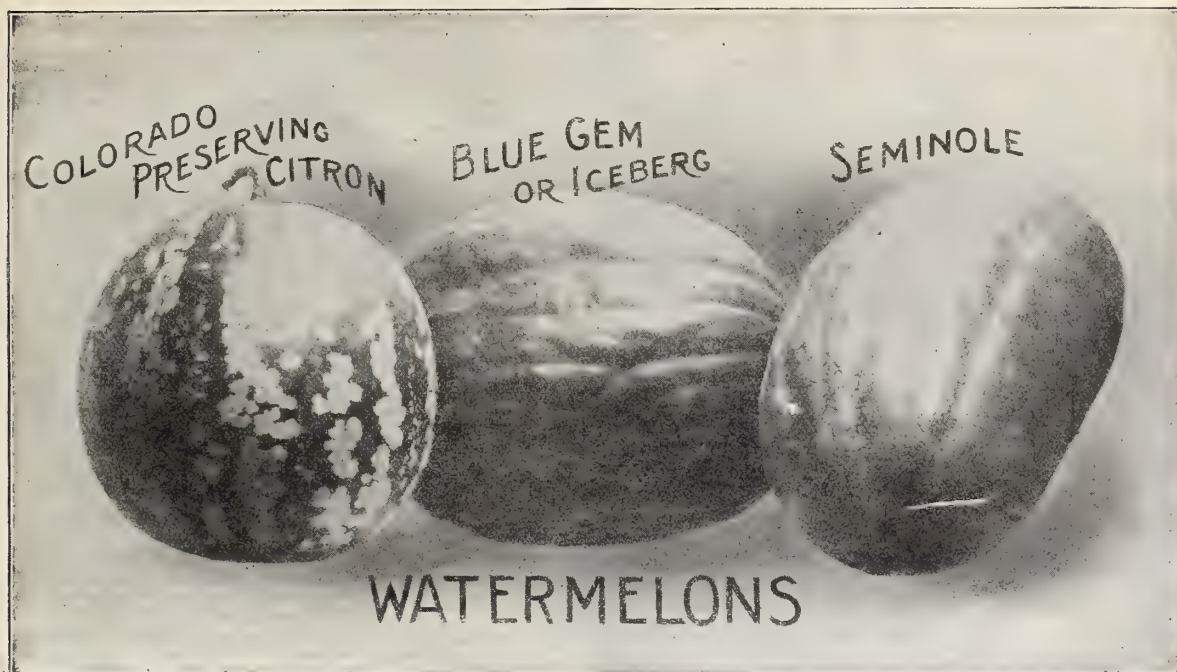 COLORADO
PRESERVING
CITRON
BLUE GEM
OR ICEBERG
SEMINOLE
WATERMELONS